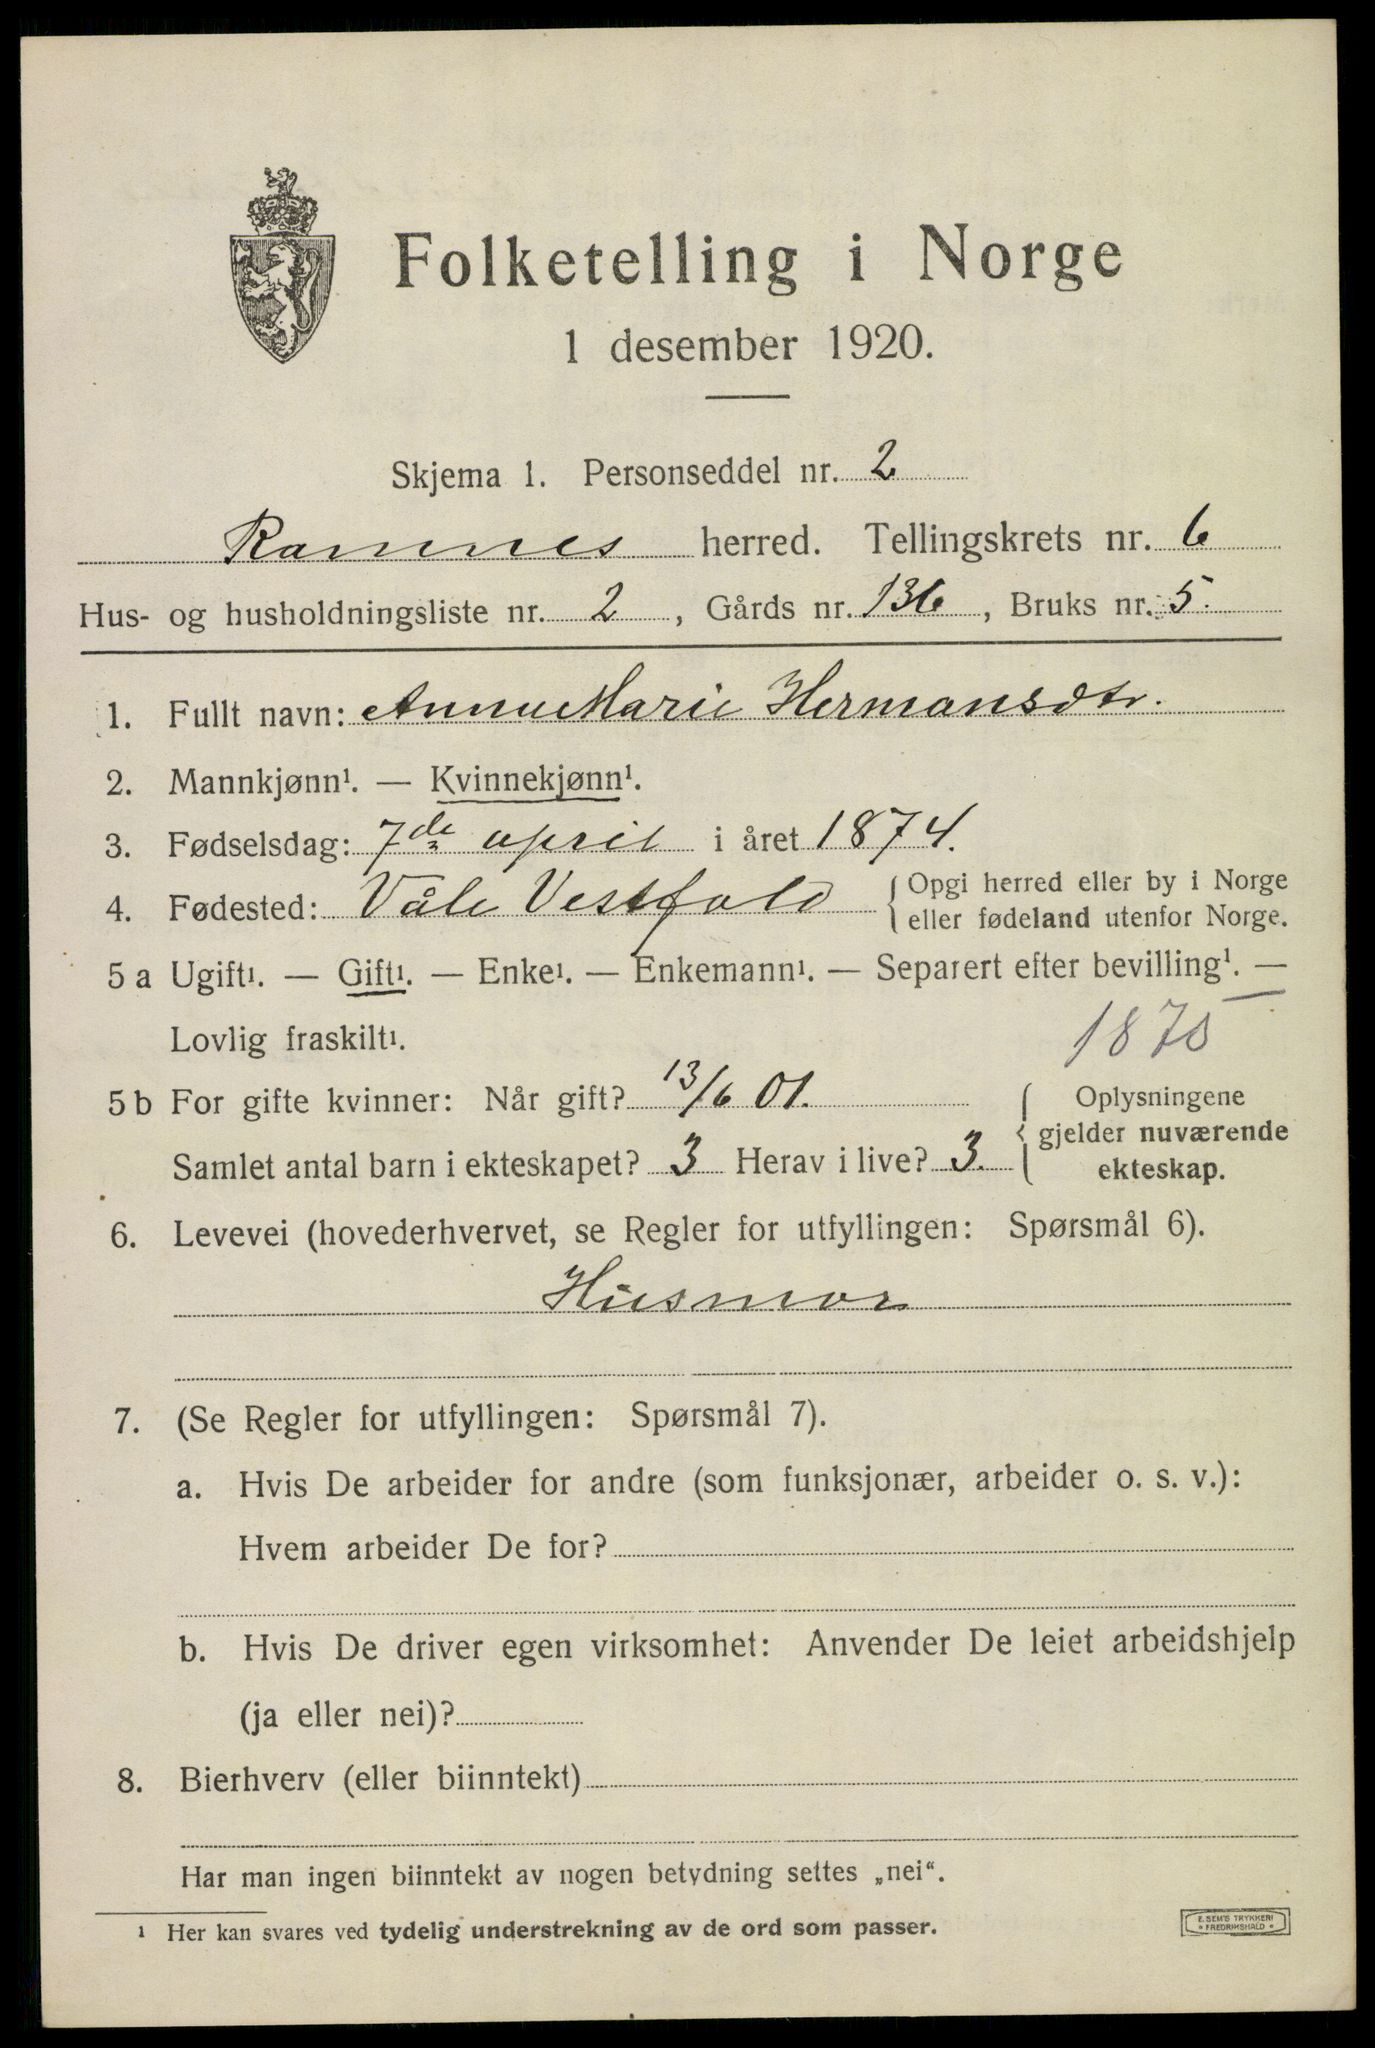 Folketelling i Norge
1 desember 1920.
Skjema 1. Personseddel nr. 2
Ramnes herred. Tellingskrets nr. 6
Hus- og husholdningsliste nr. 2, Gårds nr. 136, Bruks nr. 5.
1. Fullt navn: Anna Marie Hermansdtr.
2. Mannkjønn¹. — Kvinnekjønn¹.
3. Fødselsdag: 7de april i året 1874.
4. Fødested: Våle Vestfold { Opgi herred eller by i Norge
eller fødeland utenfor Norge.
5 a Ugift¹. — Gift¹. — Enke¹. — Enkemann¹. — Separert efter bevilling¹. —
Lovlig fraskilt¹. 1875
5 b For gifte kvinner: Når gift? 13/6 01. Oplysningene
gjelder nuværende
Samlet antal barn i ekteskapet? 3 Herav i live? 3. ekteskap.
6. Levevei (hovederhvervet, se Regler for utfyllingen: Spørsmål 6).
Husmor
7. (Se Regler for utfyllingen: Spørsmål 7).
a. Hvis De arbeider for andre (som funksjonær, arbeider o. s. v.):
Hvem arbeider De for?
b. Hvis De driver egen virksomhet: Anvender De leiet arbeidshjelp
(ja eller nei)?
8. Bierhverv (eller biinntekt)
Har man ingen biinntekt av nogen betydning settes „nei“.
¹ Her kan svares ved tydelig understrekning av de ord som passer.
E. SEM'S TRYKKERI
* FREDRIKSHALD *